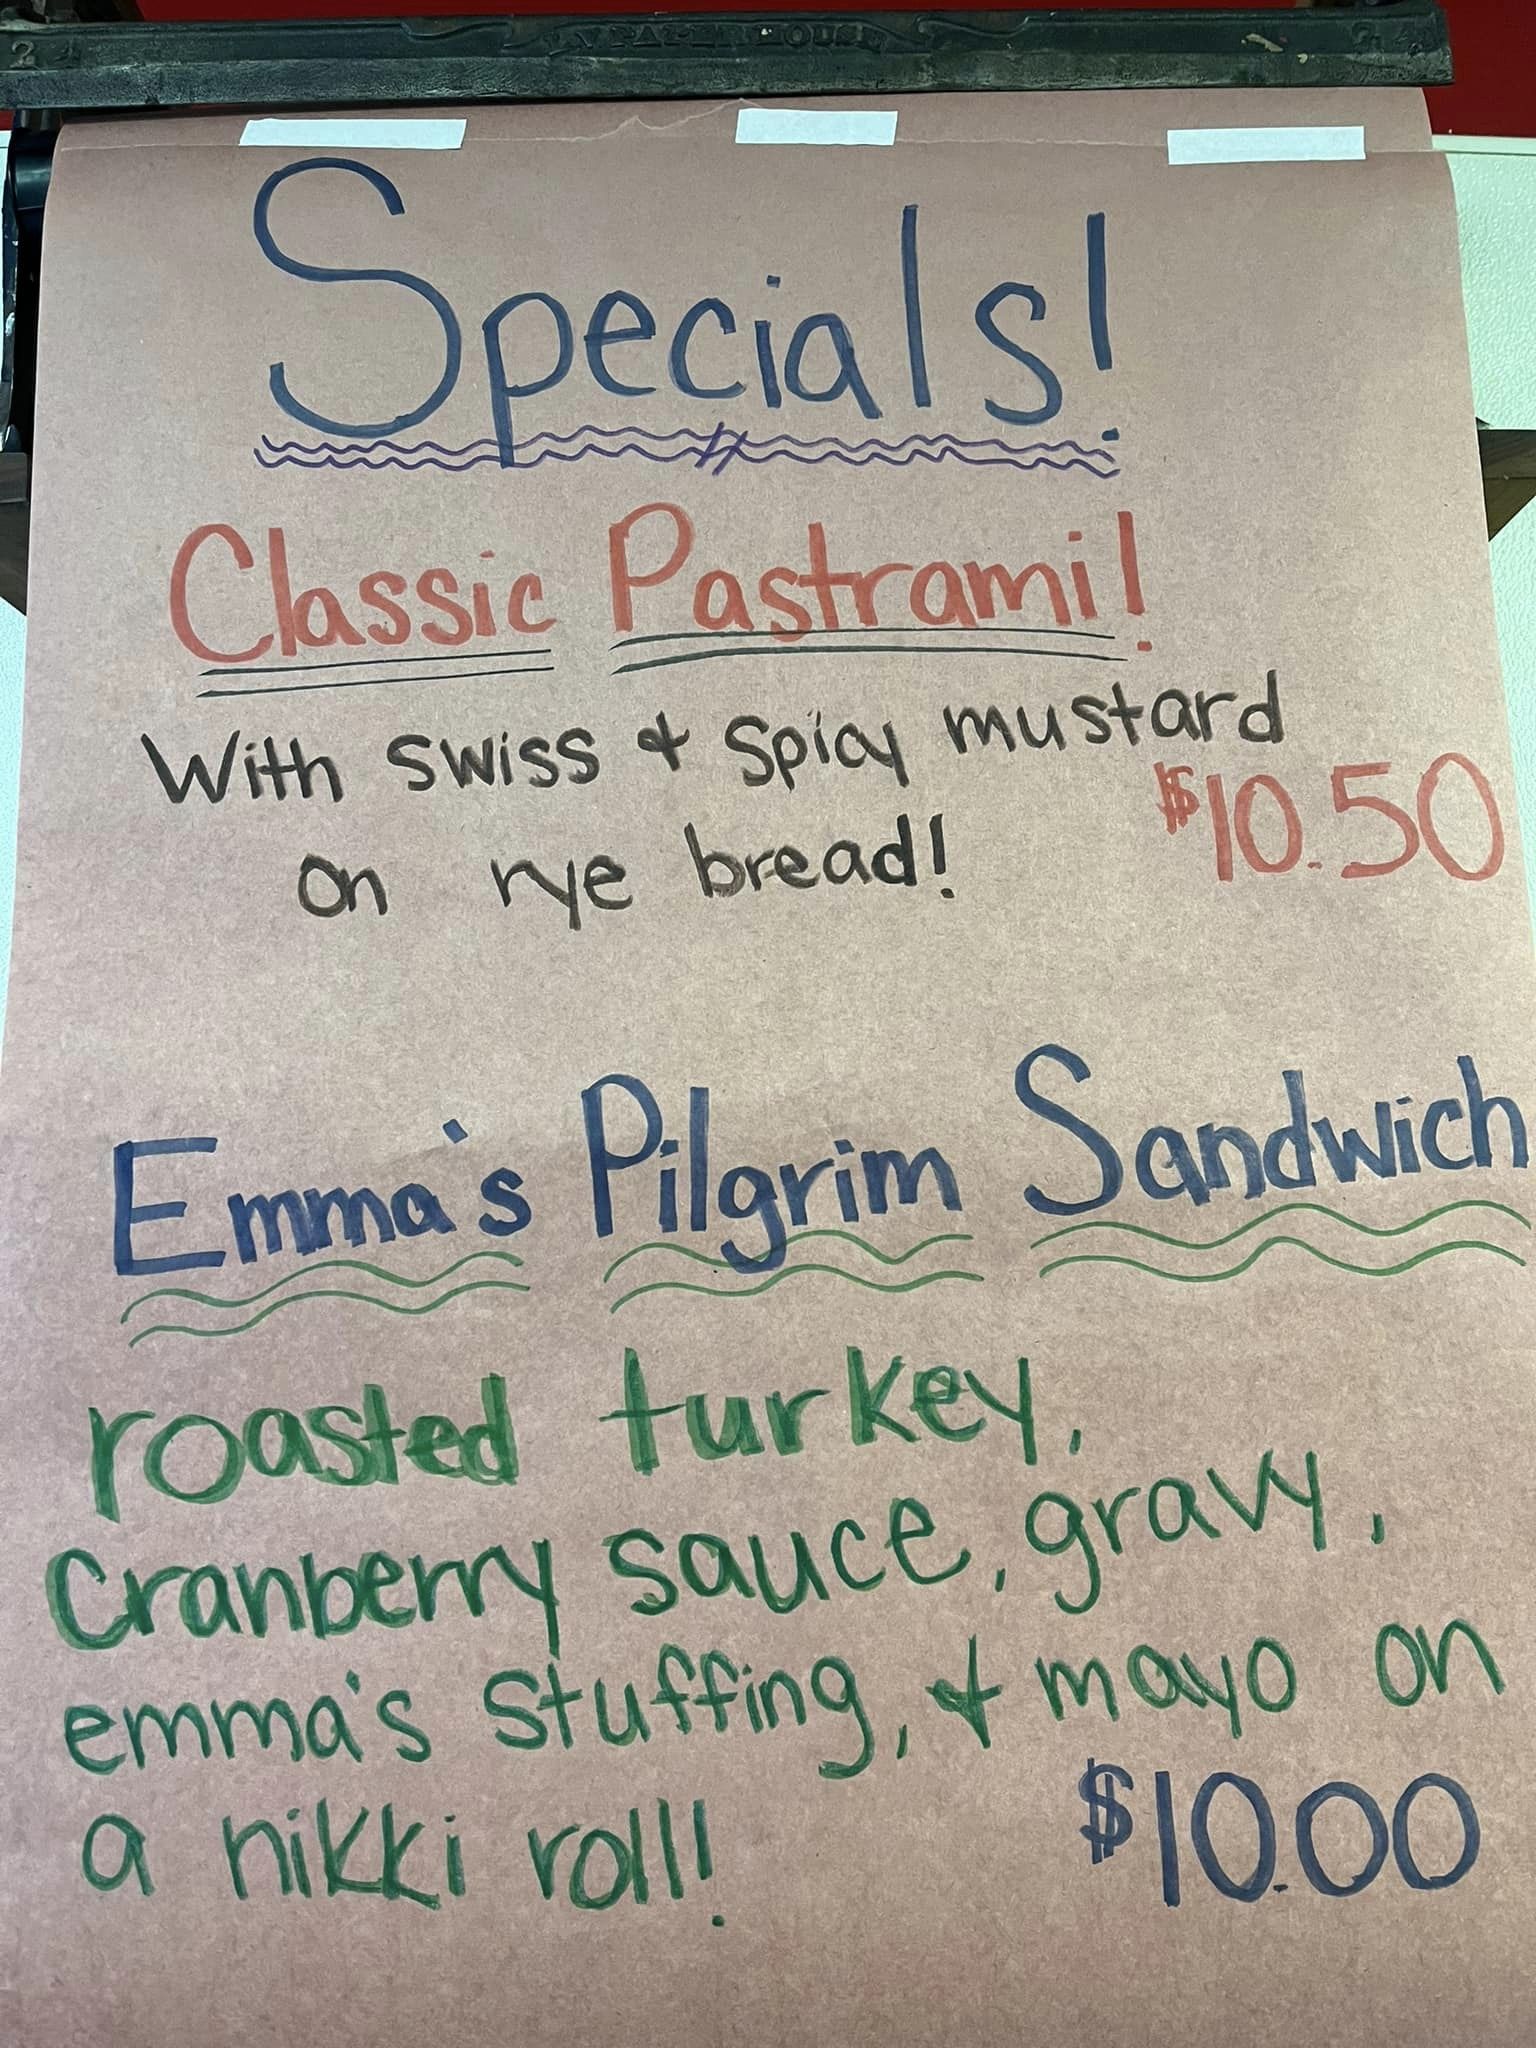 Specials!
Classic Pastrami!
With swiss & spicy mustard
on rye bread! $10.50
Emma's Pilgrim Sandwich
roasted turkey,
Cranberry sauce, gravy,
emma's stuffing, & mayo on
a nikki roll! $10.00